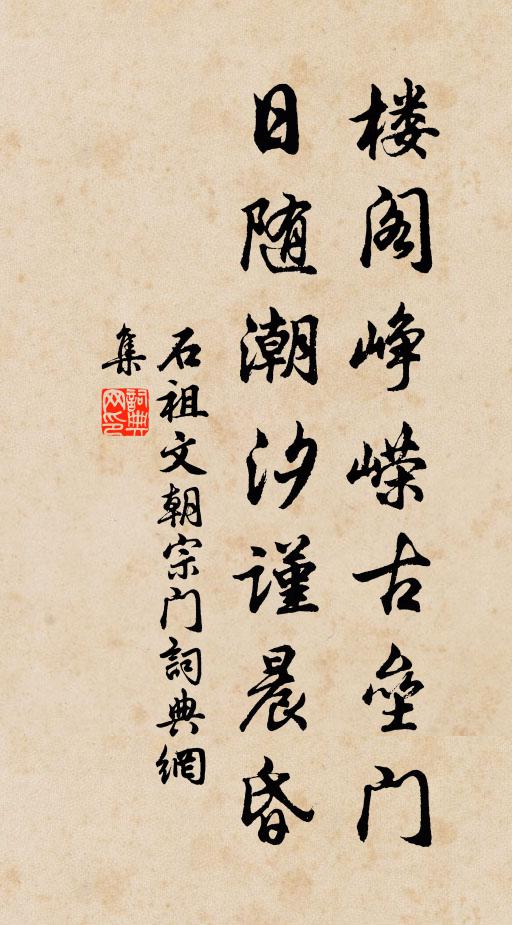 楼阁峥嵘古垒门
日随潮汐谨晨昏
石祖文朝宗门詞典網
集
詞典网印